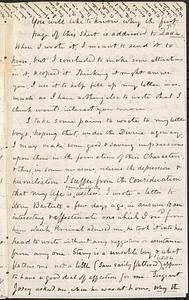 You will like to know why the first
page of this sheet is addressed to
When I wrote it, I meant to send it to
him, but I concluded to make some alteration
in it, & copied it. Thinking it might answer
you, I use it to help fill up my letter inas-
much as I have nothing else to write that I
think won't interest you more.
I take some pains to write to my little
boys, hoping that, under the Divine agency,
I may make some good & saving impressions
upon them in the formation of their characters,
& thus in some measure relieve the depression &
humiliation I suffer from the consideration
that my life is useless. I wrote a letter to
Bartlett, a few days ago in answer to an
interesting & affectionate one which I rec'd from
him, which Percival advised me he took it into his
head to write without any suggestion or assistance
from any one. is a sensible boy & what
flatters me not a little (I am easily flattered) appears
to have a good deal of affection for me. Sergeant
Josey asked me when he was at home, why the